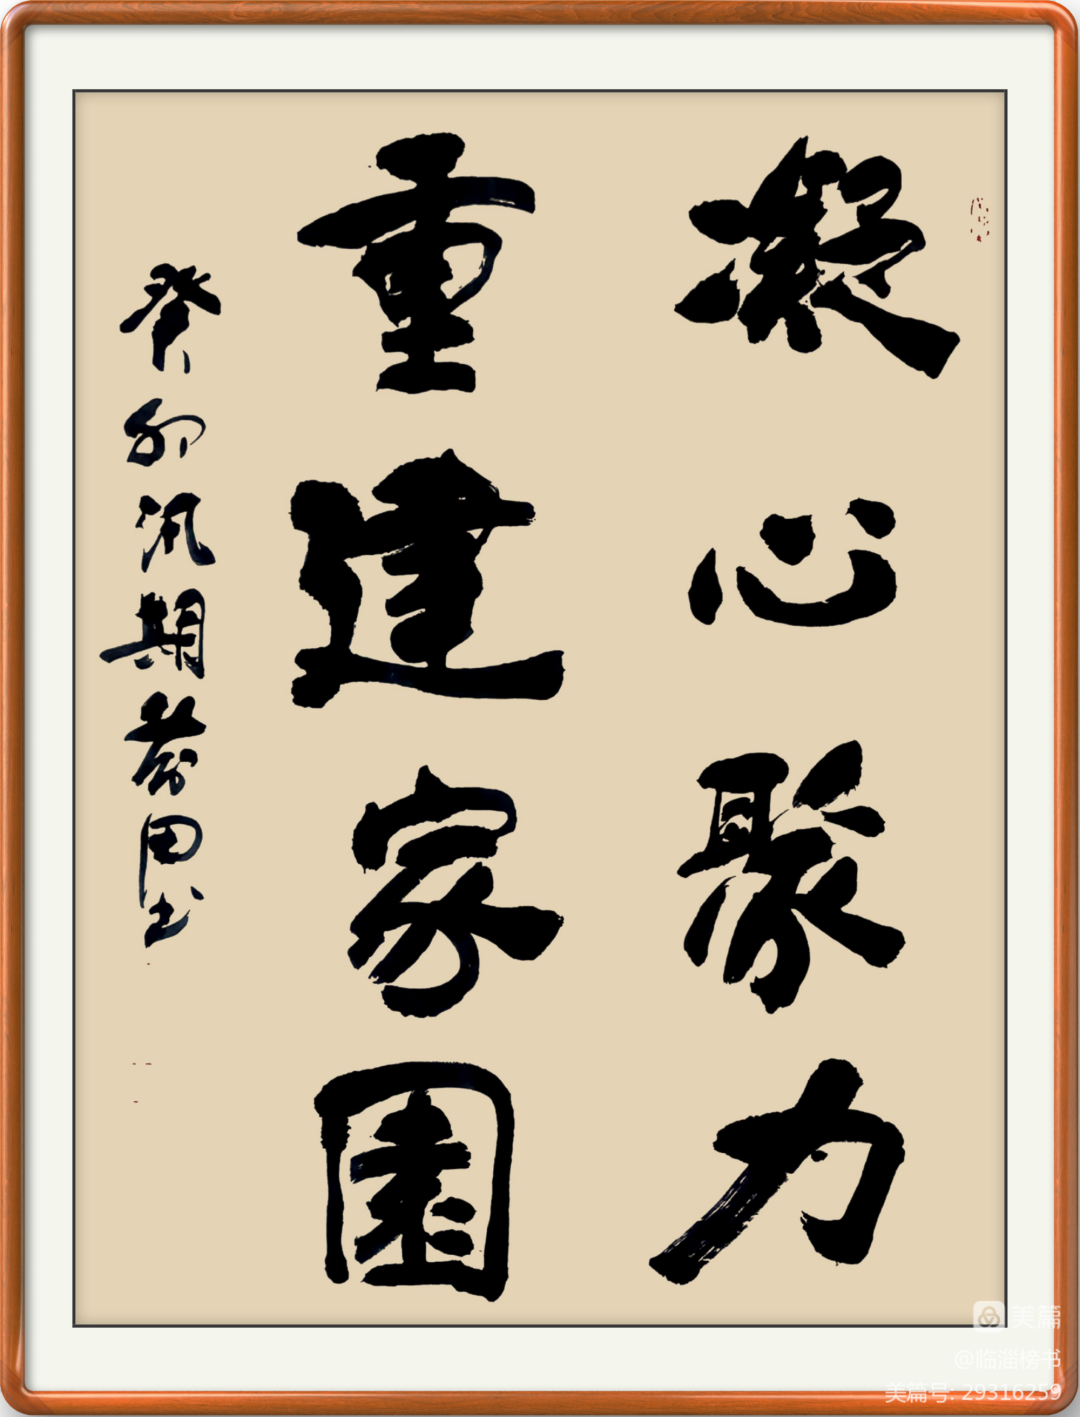 凝心聚力
重建家園
癸卯汛期
田书
美篇
@临淄榜书
美篇号: 29316259